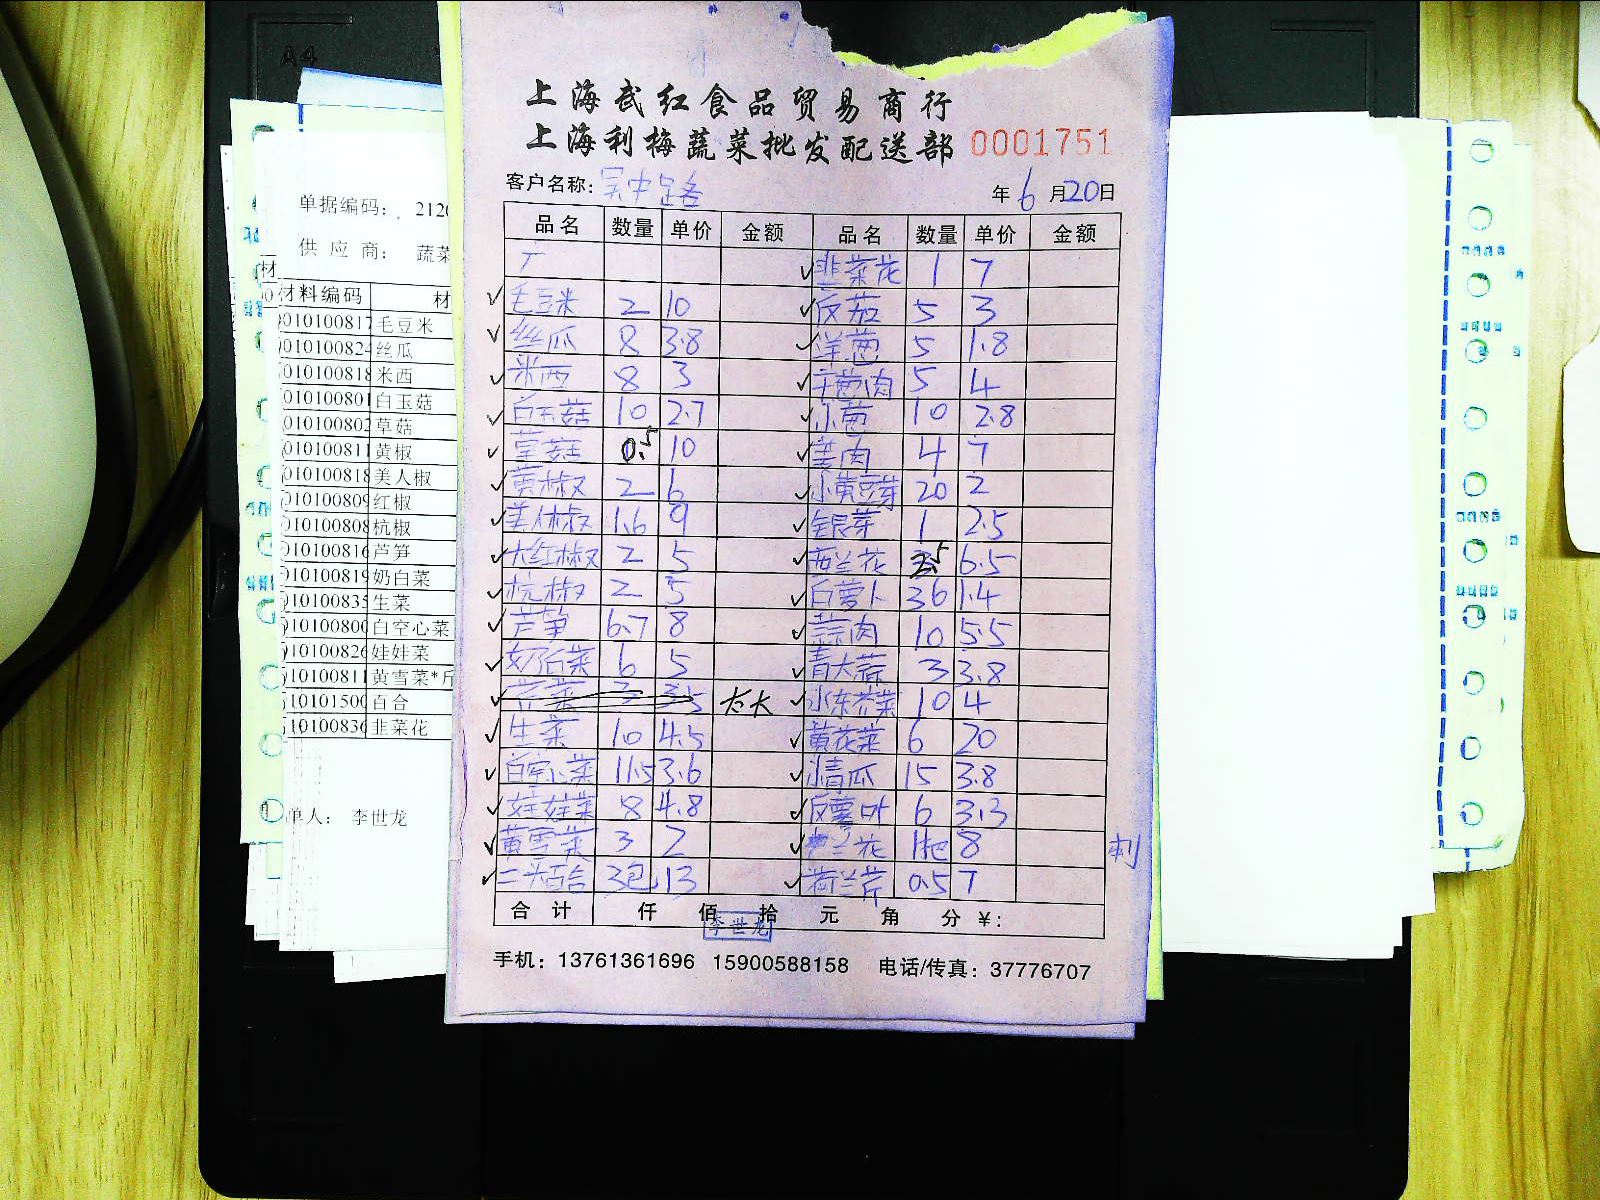 A4
上海武红食品贸易商行
上海利梅蔬菜批发配送部 0001751
客户名称: 年 6 月 20 日
品名 数量 单价 金额 品名 数量 单价 金额
韭菜花 1 7
毛豆米 2 10 5 3
丝瓜 8 3.8 洋葱 5 1.8
米西 8 3 5 4
白玉菇 10 2.7 小葱 10 2.8
草菇 0.5 10 姜肉 4 7
黄椒 2 6 小黄豆芽 20 2
美人椒 1.6 9 银芽 1 2.5
大红椒 2 5 荷兰花 6.5
杭椒 2 5 白萝卜 36 1.4
芦笋 6.7 8 蒜肉 10 5.5
奶白菜 6 5 青大蒜 3 3.8
太大 10 4
生菜 10 4.5 黄花菜 6 20
白空心菜 11.5 3.6 小青瓜 15 3.8
娃娃菜 8 4.8 6 3.3
黄雪菜 3 2 兰花 1把 8 刺
二头百合 3包 13 荷兰芹 0.5 7
合计 仟 佰 拾 元 角 分 ¥:
李世龙
手机: 13761361696 15900588158 电话/传真: 37776707
单据编码: 2120
供应商: 蔬菜
材料编码 材
010100817 毛豆米
01010082 丝瓜
010100818 米西
01010080 白玉菇
01010080 草菇
01010081 黄椒
010100818 美人椒
010100809 红椒
010100808 杭椒
010100816 芦笋
010100819 奶白菜
010100835 生菜
01010080 白空心菜
010100826 娃娃菜
01010081 黄雪菜*斤
10101500 百合
10100836 韭菜花
单人: 李世龙